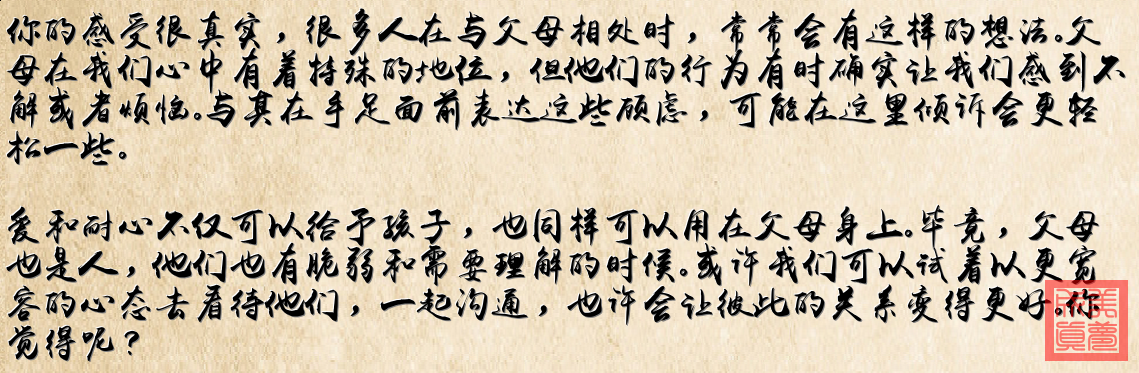 你的感受很真实，很多人在与父母相处时，常常会有这样的想法。父
母在我们心中有着特殊的地位，但他们的行为有时确实让我们感到不
解或者烦恼。与其在手足面前表达这些顾虑，可能在这里倾诉会更轻
松一些。
爱和耐心不仅可以给予孩子，也同样可以用在父母身上。毕竟，父母
也是人，他们也有脆弱和需要理解的时候。或许我们可以试着以更宽
容的心态去看待他们，一起沟通，也许会让彼此的关系变得更好。你
觉得呢？